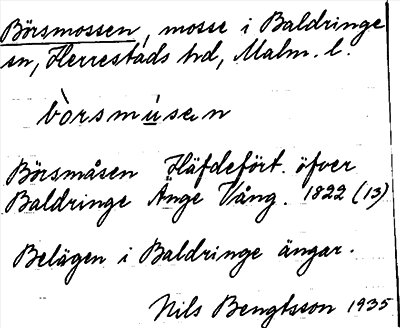 Börsmossen, mosse i Baldringe
sn, Herrestads hd, Malm. l.
bòrsmúsen
Börsmåsen Häfdefört. öfver
Baldringe Änge Vång. 1822 (13)
Belägen i Baldringe ängar.
Nils Bengtsson 1935